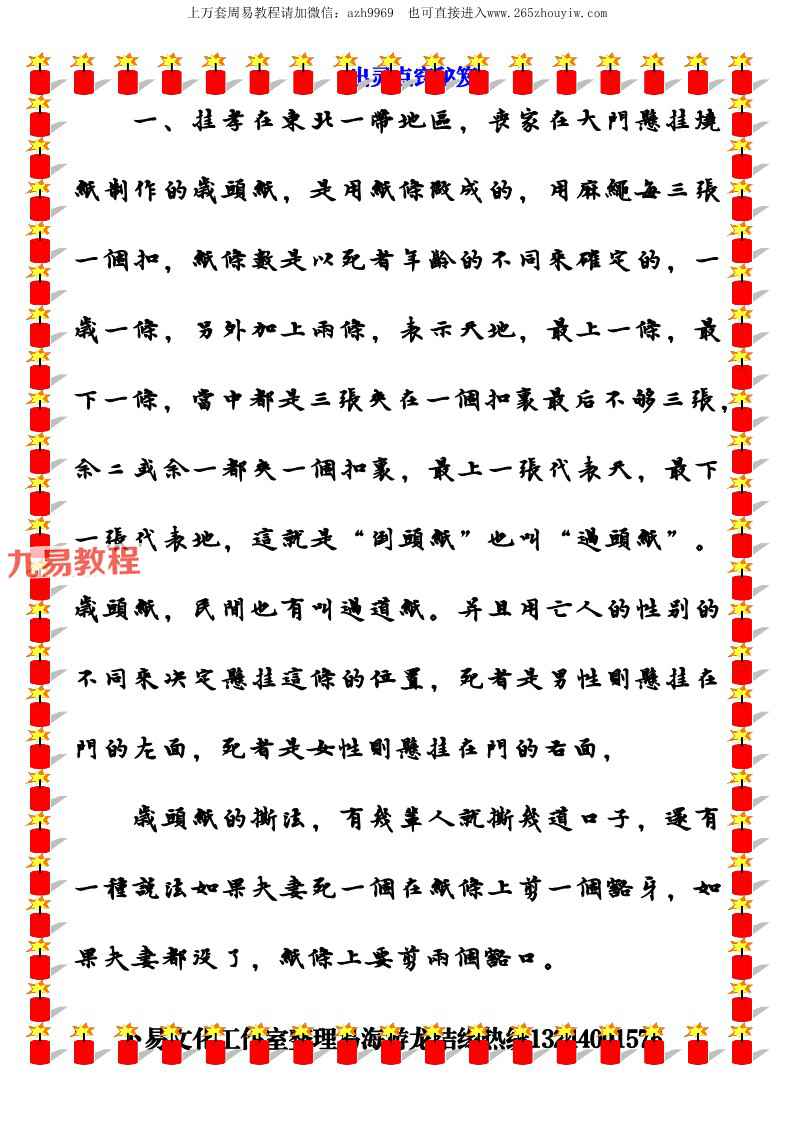 上万套周易教程请加微信：azh9969　也可直接进入www.265zhouyiw.com
一、挂孝在東北一帶地區，喪家在大門懸挂燒
紙制作的歲頭紙，是用紙條做成的，用麻繩每三張
一個扣，紙條數是以死者年齡的不同來確定的，一
歲一條，另外加上兩條，表示天地，最上一條，最
下一條，當中都是三張夾在一個扣裏最后不够三張，
余二或余一都夾一個扣裏，最上一張代表天，最下
一張代表地，這就是“倒頭紙”也叫“過頭紙”。
九易教程
歲頭紙，民間也有叫過道紙。并且用亡人的性别的
不同來决定懸挂這條的位置，死者是男性則懸挂在
門的左面，死者是女性則懸挂在門的右面，
歲頭紙的撕法，有幾輩人就撕幾道口子，還有
一種説法如果夫妻死一個在紙條上剪一個豁牙，如
果夫妻都没了，紙條上要剪兩個豁口。